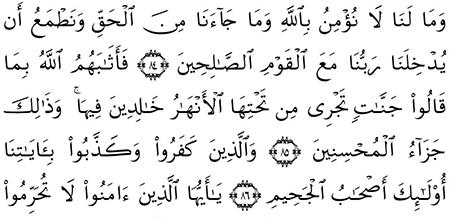 وَمَا لَنَا لَا نُؤْمِنُ بِٱللَّهِ وَمَا جَآءَنَا مِنَ ٱلْحَقِّ وَنَطْمَعُ أَن
يُدْخِلَنَا رَبُّنَا مَعَ ٱلْقَوْمِ ٱلصَّٰلِحِينَ ۝٨٤ فَأَثَٰبَهُمُ ٱللَّهُ بِمَا
قَالُوا۟ جَنَّٰتٍ تَجْرِى مِن تَحْتِهَا ٱلْأَنْهَٰرُ خَٰلِدِينَ فِيهَا ۚ وَذَٰلِكَ
جَزَآءُ ٱلْمُحْسِنِينَ ۝٨٥ وَٱلَّذِينَ كَفَرُوا۟ وَكَذَّبُوا۟ بِـَٔايَٰتِنَآ
أُو۟لَٰٓئِكَ أَصْحَٰبُ ٱلْجَحِيمِ ۝٨٦ يَٰٓأَيُّهَا ٱلَّذِينَ ءَامَنُوا۟ لَا تُحَرِّمُوا۟